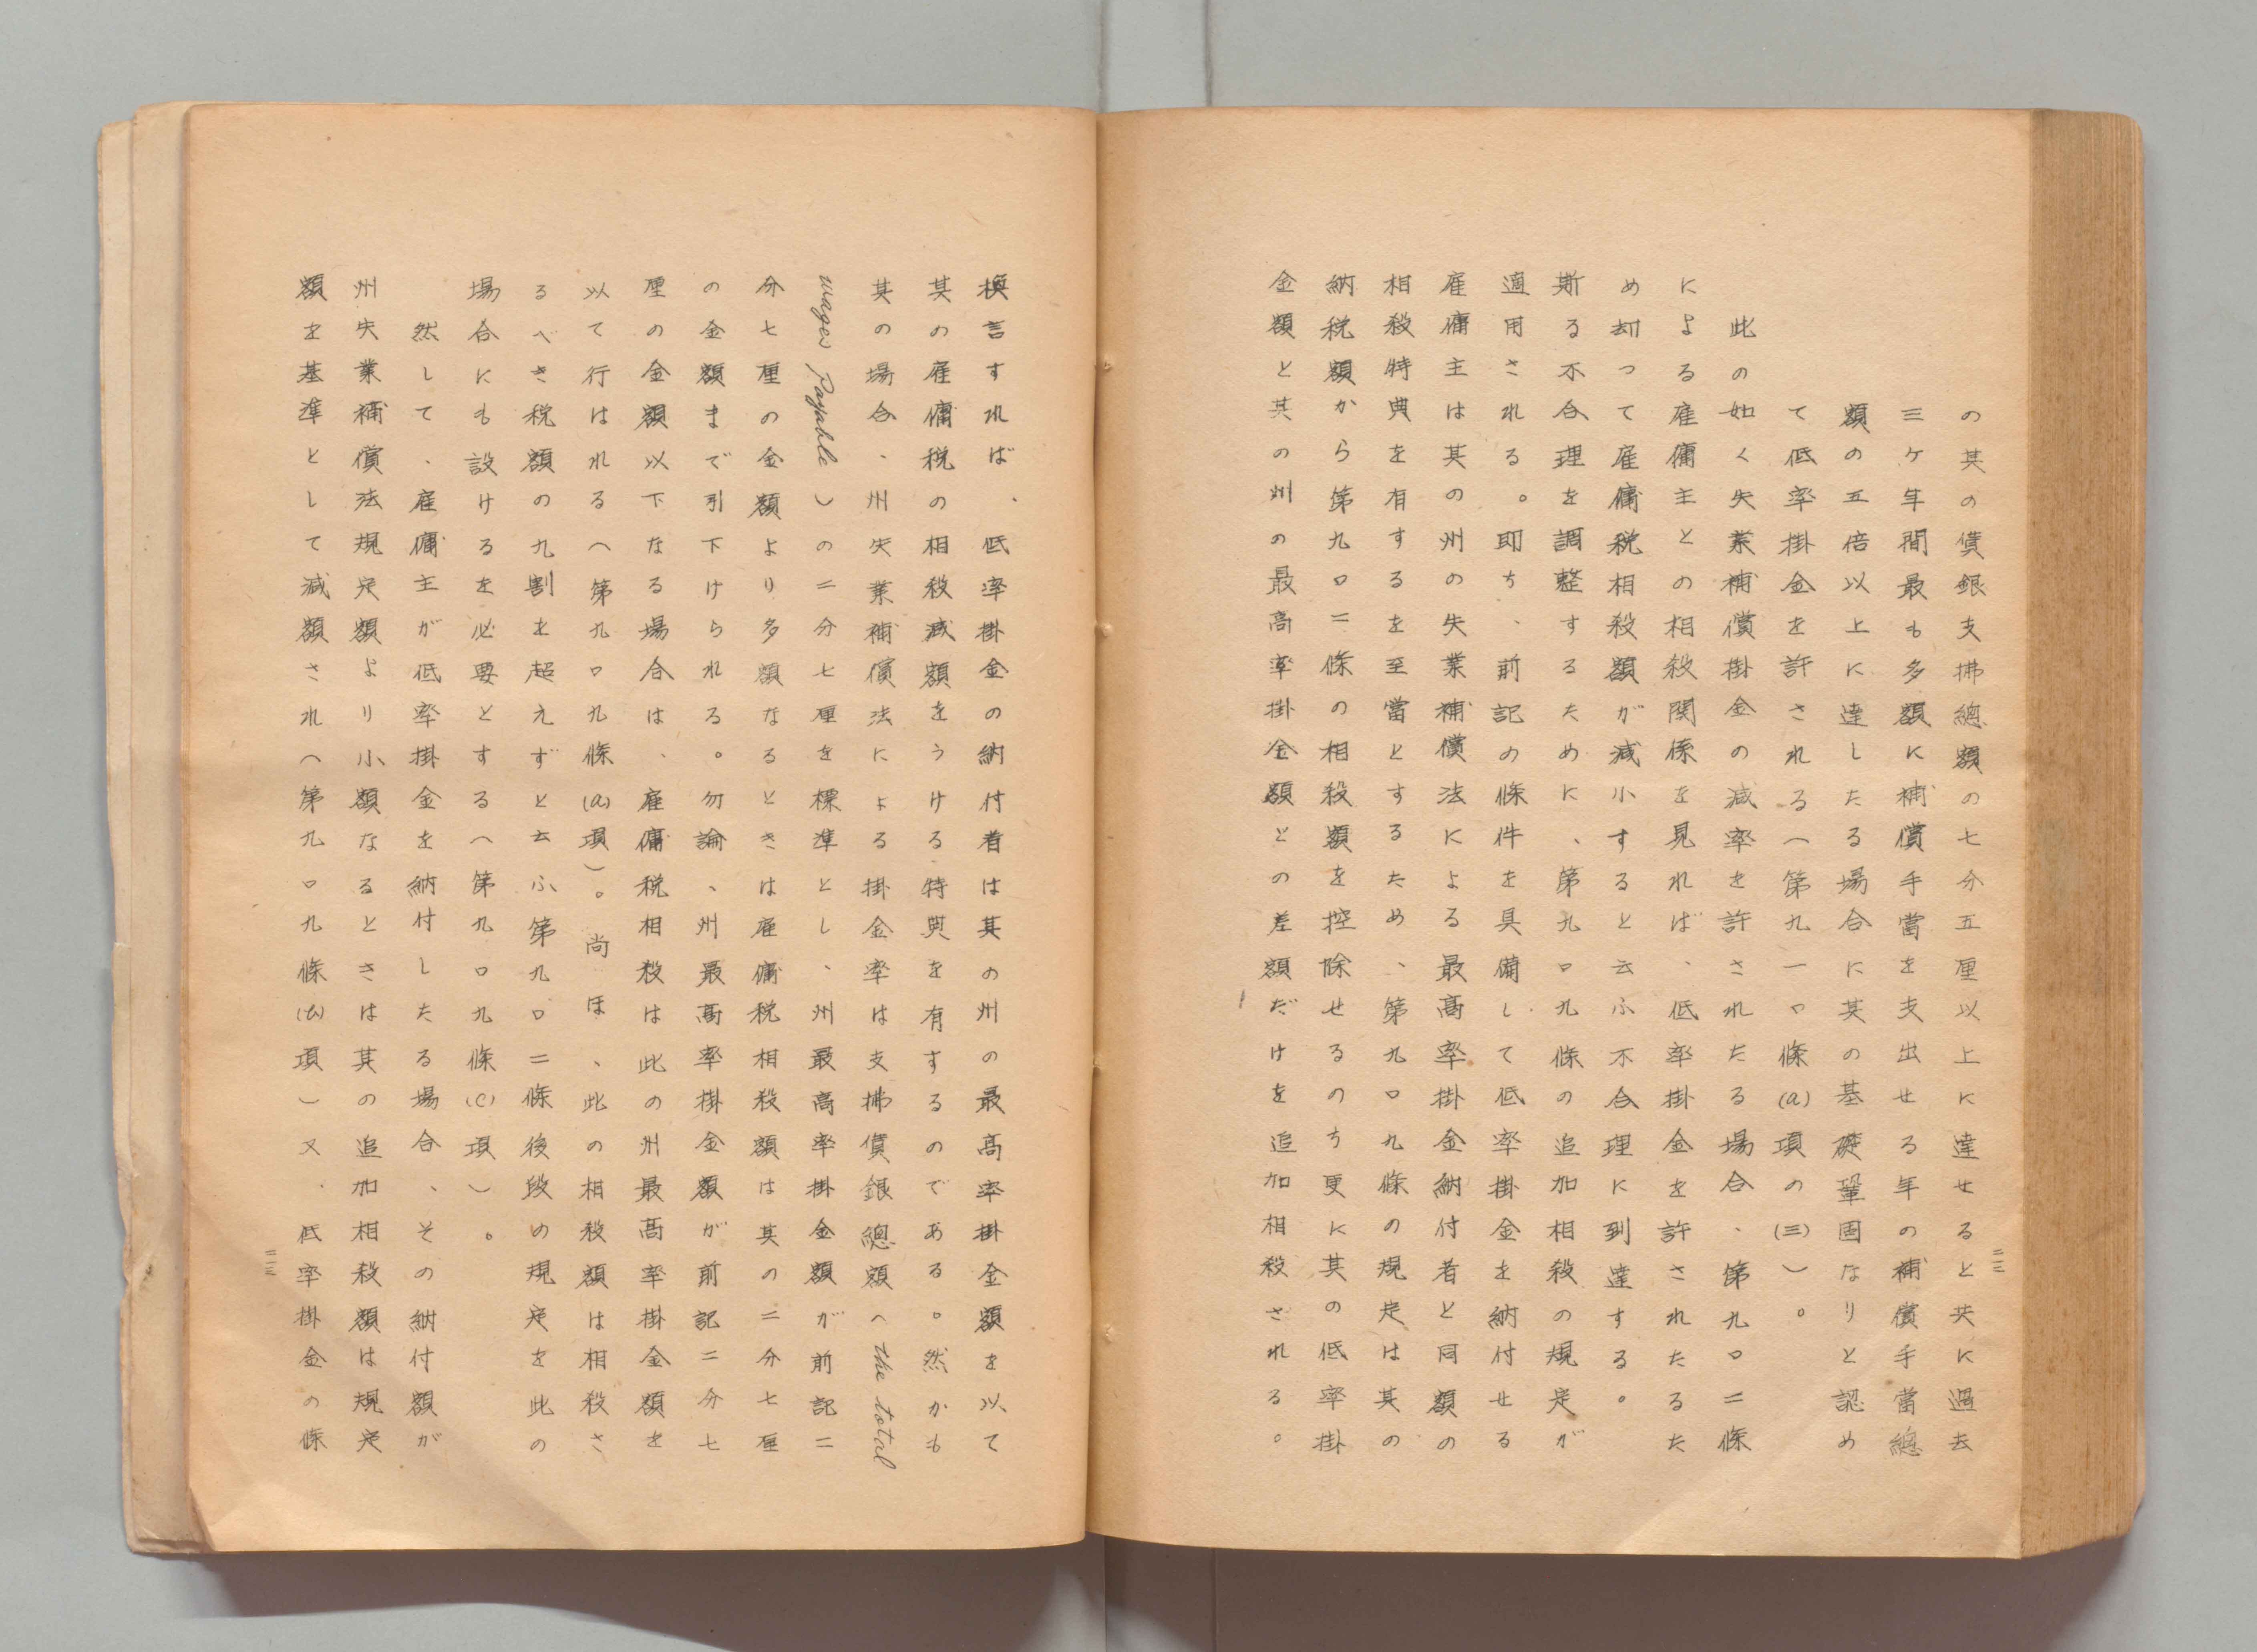 の其の賃銀支拂總額の七分五厘以上に達せると共に過去
三ケ年間最も多額に補償手當を支出せる年の補償手當總
額の五倍以上に達したる場合に其の基礎鞏固なりと認め
て低率掛金を許される(第九一〇條(a)項の(三))。
此の如く失業補償掛金の減率を許されたる場合、第九〇二條
による雇傭主との相殺関係を見れば、低率掛金を許されたるた
め却つて雇傭税相殺額が減小すると云ふ不合理に到達する。
斯る不合理を調整するために、第九〇九條の追加相殺の規定が
適用される。即ち、前記の條件を具備して低率掛金を納付せる
雇傭主は其の州の失業補償法による最高率掛金納付者と同額の
相殺特典を有するを至當とするため、第九〇九條の規定は其の
納税額から第九〇二條の相殺額を控除せるのち更に其の低率掛
金額と其の州の最高率掛金額との差額だけを追加相殺される。
二二
換言すれば、低率掛金の納付者は其の州の最高率掛金額を以て
其の雇傭税の相殺減額をうける特典を有するのである。然かも
其の場合、州失業補償法による掛金率は支拂賃銀總額(the total
wages payable)の二分七厘を標準とし、州最高率掛金額が前記二
分七厘の金額より多額なるときは雇傭税相殺額は其の二分七厘
の金額まで引下けられる。勿論、州最高率掛金額が前記二分七
厘の金額以下なる場合は、雇傭税相殺は此の州最高率掛金額を
以て行はれる(第九〇九條(a)項)。尚ほ、此の相殺額は相殺さ
るべき税額の九割を超えずと云ふ第九〇二條後段の規定を此の
場合にも設けるを必要とする(第九〇九條(c)項)。
然して、雇傭主が低率掛金を納付したる場合、その納付額が
州失業補償法規定額より小額なるときは其の追加相殺額は規定
額を基準として減額され(第九〇九條(b)項)又、低率掛金の條
二三